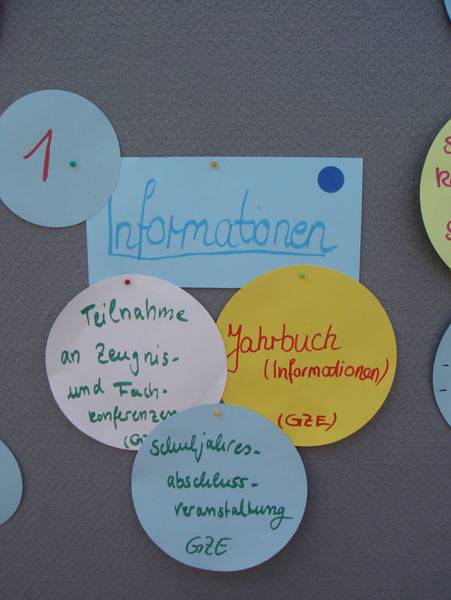 1
Informationen
Teilnahme
an Zeugnis-
und Fach-
konferenzen
Jahrbuch
(Informationen)
(GZE)
Schuljahres-
abschluss-
veranstaltung
GZE